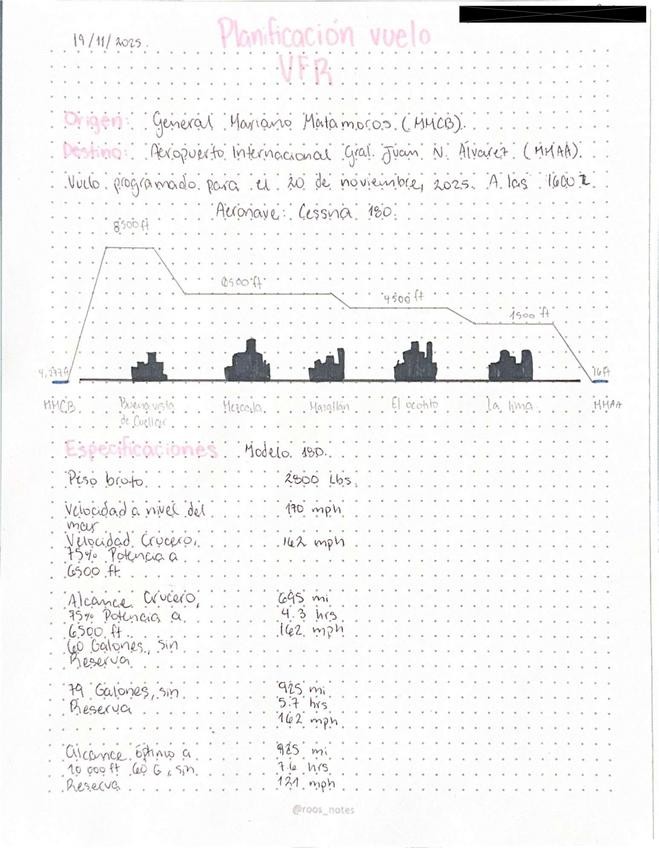 19/11/2025.
Planificación vuelo
VFR
Origen: General Mariano Matamoros (MMCB).
Destino: Aeropuerto Internacional Gral. Juan N. Álvarez (MMAA).
Vuelo programado para el 20 de noviembre, 2025. A las 1600 Z.
Aeronave: Cessna 180.
8500 ft
6500 ft
4500 ft
1500 ft
16ft
MMCB
Buenavista
de Cuellar
Mezcala
Mazatlán
El ocotito
La lima
MMAA
Especificaciones Modelo 180.
Peso bruto 2800 Lbs.
Velocidad a nivel del 170 mph
mar
Velocidad Crucero, 162 mph
75% Potencia a
6500 ft.
Alcance Crucero, 695 mi
75% Potencia a 4.3 hrs
6500 ft. 162 mph
60 Galones, sin
Reserva
79 Galones, sin 925 mi
Reserva 5.7 hrs
162 mph
Alcance óptimo a 925 mi
10 000 ft 60 G, sin 7.6 hrs
Reserva 121 mph
@roos_notes